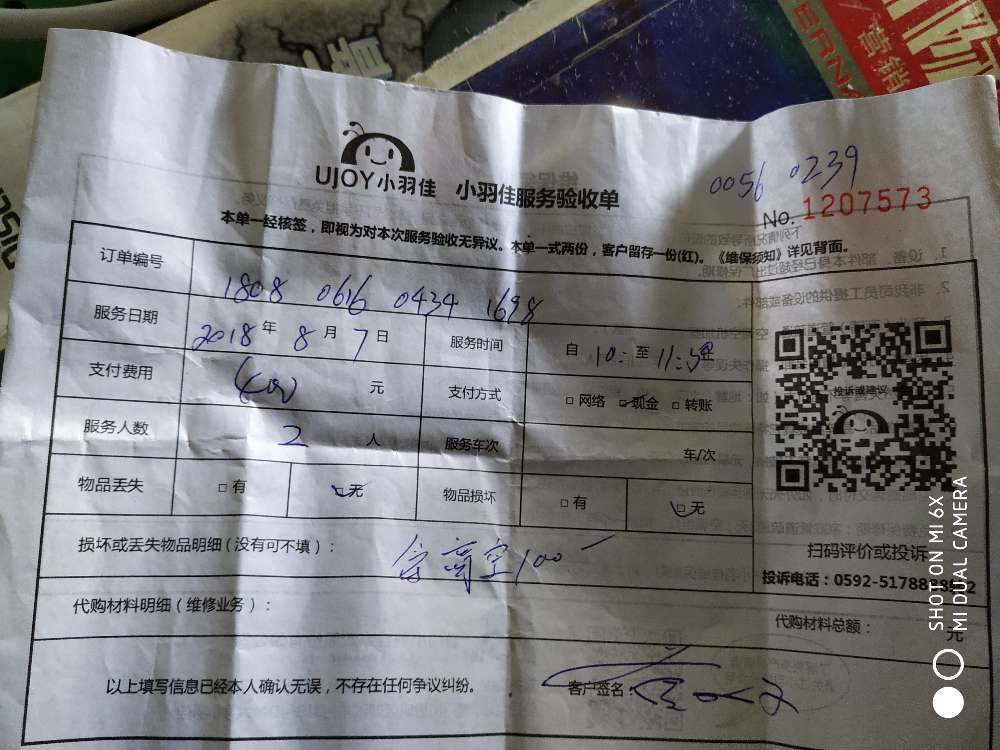 UJOY小羽佳 小羽佳服务验收单
0056 0239
No. 1207573
本单一经核签，即视为对本次服务验收无异议。本单一式两份，客户留存一份(红)。《维保须知》详见背面。
订单编号 1808 0616 0434 1698
服务日期 2018年 8月 7日 服务时间 自 10: 至 11:30止
支付费用 元 支付方式 □网络 □现金 □转账
服务人数 2 人 服务车次 车/次
物品丢失 □有 □无 物品损坏 □有 □无
投诉或建议
扫码评价或投诉
损坏或丢失物品明细(没有可不填)： 高空100
投诉电话：0592-5178888
代购材料明细(维修业务)： 代购材料总额： 元
以上填写信息已经本人确认无误，不存在任何争议纠纷。 客户签名：
SHOT ON MI 6X
MI DUAL CAMERA
营销